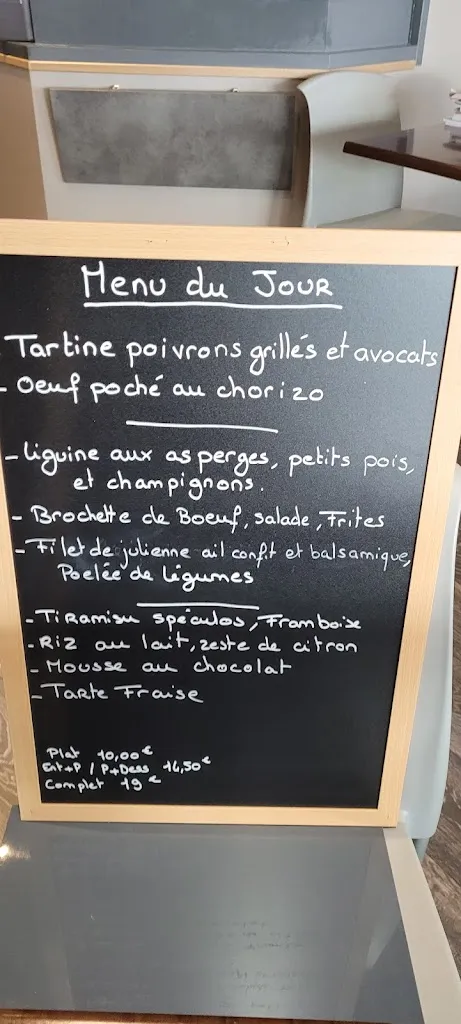 Menu du JOUR
Tartine poivrons grillés et avocats
- Oeuf poché au chorizo
- Liguine aux asperges, petits pois,
et champignons.
- Brochette de Boeuf, salade, Frites
- Filet de julienne ail confit et balsamique,
Poelée de légumes
- Tiramisu spéculos, Framboise
- Riz au lait, zeste de citron
- Mousse au chocolat
- Tarte Fraise
Plat 10,00€
Ent+P / P+Dess 14,50€
Complet 19€